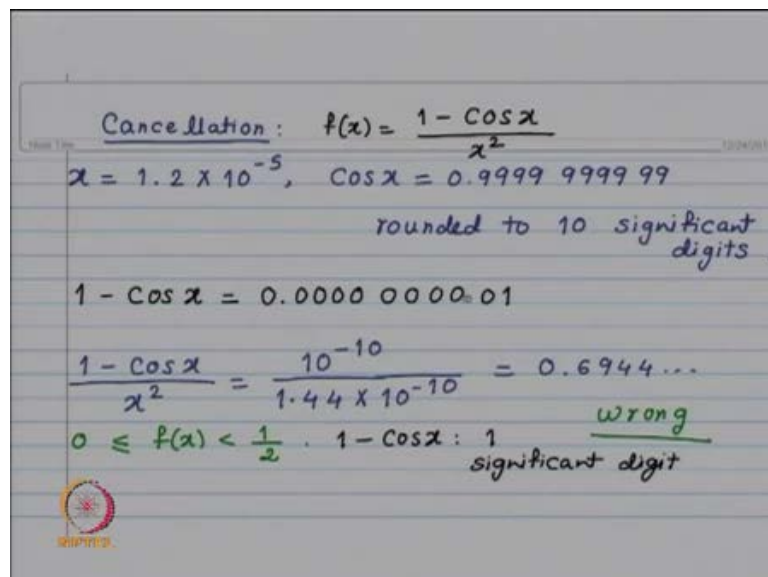 Cancellation : f(x) = (1 - Cos x) / x²
x = 1.2 X 10⁻⁵, Cos x = 0.9999 9999 99
rounded to 10 significant
digits
1 - Cos x = 0.0000 0000 01
(1 - Cos x) / x² = 10⁻¹⁰ / (1.44 X 10⁻¹⁰) = 0.6944...
wrong
0 ≤ f(x) < 1/2 . 1 - Cos x : 1
significant digit
NPTEL